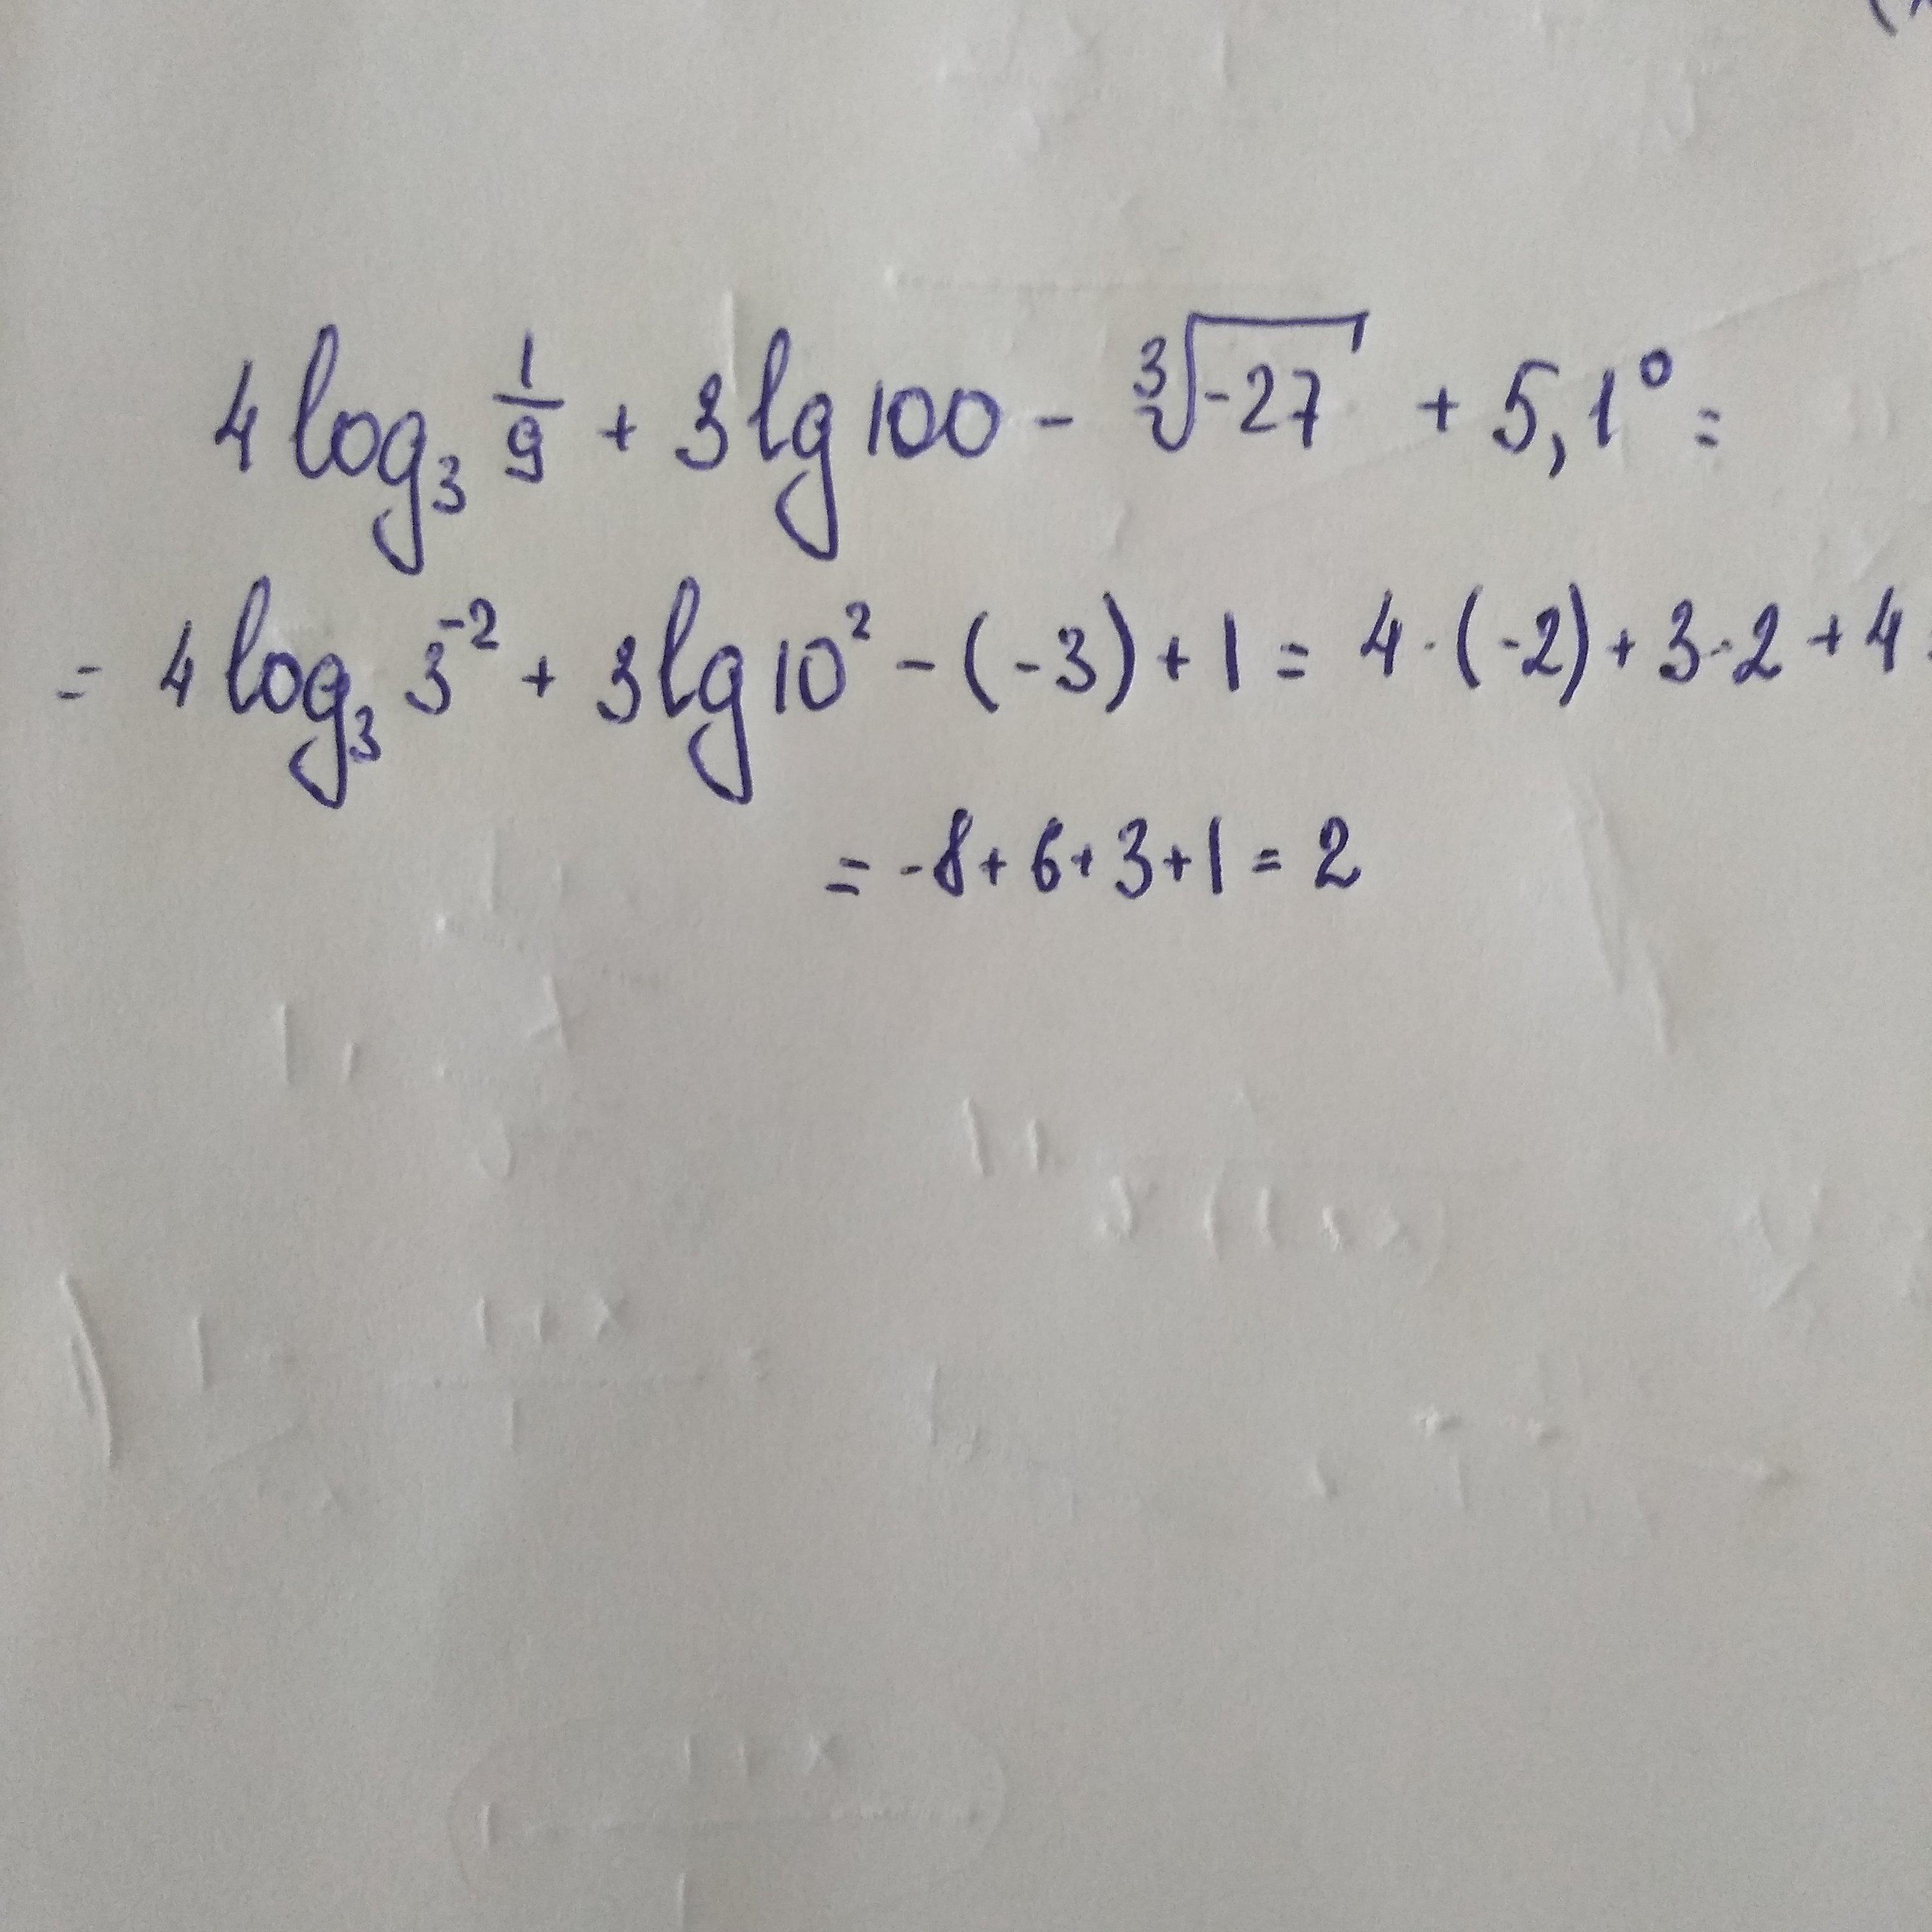 4 log₃ 1/9 + 3 lg 100 - ∛-27 + 5,1⁰ =
= 4 log₃ 3⁻² + 3 lg 10² - (-3) + 1 = 4 · (-2) + 3 · 2 + 4
= -8 + 6 + 3 + 1 = 2